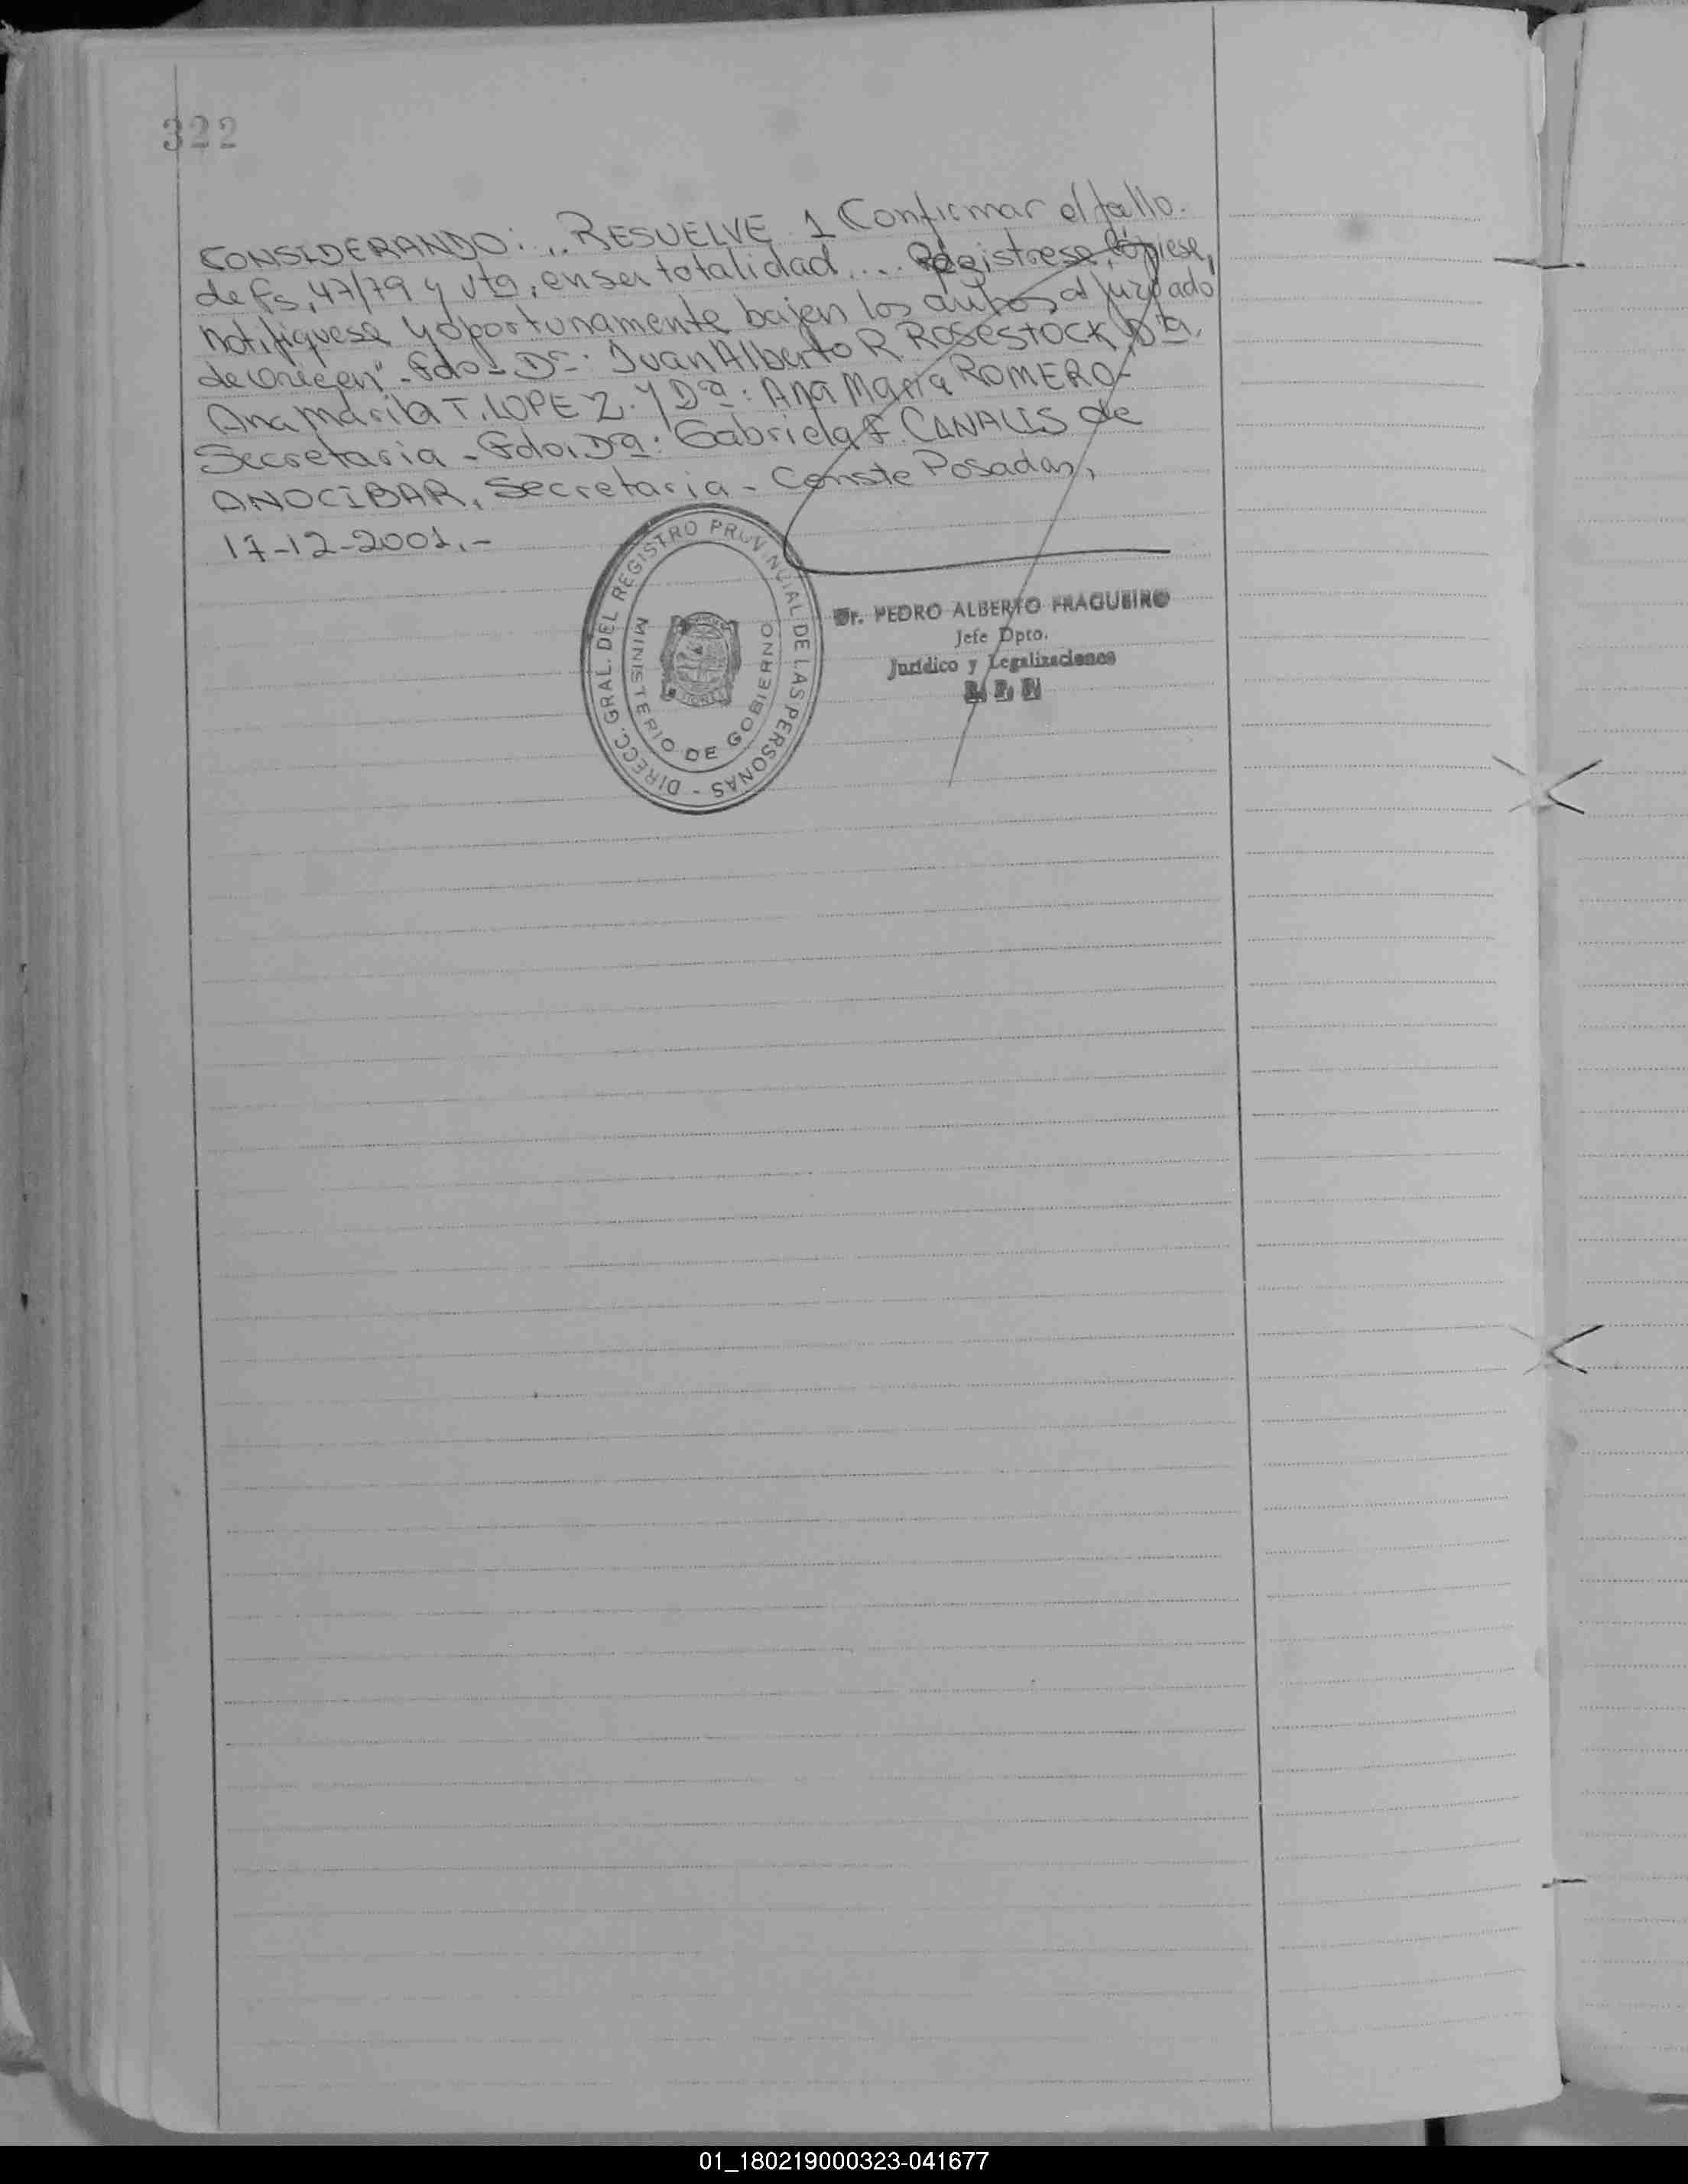 322
CONSIDERANDO: .. RESUELVE 1 Confirmar el fallo.
de fs, 47/79 y vta, en su totalidad .... Registrese, Cópiese,
notifíquese y oportunamente bajen los autos al juzgado
de origen" - Fdo - Dr: Juan Alberto R ROSESTOCK, Dra.
Ana Marila T. LOPEZ. y Dra: Ana María ROMERO -
Secretaria - Fdo, Dra: Gabriela F. CANALIS de
ANOCIBAR, Secretaria - Conste Posadas,
17-12-2001.-
DIRECC. GRAL. DEL REGISTRO PROVINCIAL DE LAS PERSONAS -
MINISTERIO DE GOBIERNO
Dr. PEDRO ALBERTO FRAGUEIRO
Jefe Dpto.
Jurídico y Legalizaciones
01_180219000323-041677